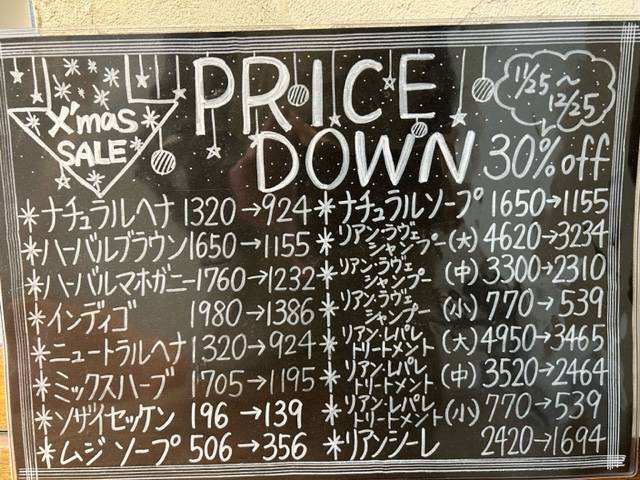 X'mas
SALE
PRICE
DOWN
11/25〜
12/25
30%off
＊ナチュラルヘナ 1320→924
＊ハーバルブラウン 1650→1155
＊ハーバルマホガニー 1760→1232
＊インディゴ 1980→1386
＊ニュートラルヘナ 1320→924
＊ミックスハーブ 1705→1195
＊ソザイセッケン 196→139
＊ムジソープ 506→356
＊ナチュラルソープ 1650→1155
＊リアン・ラヴェ
シャンプー(大) 4620→3234
＊リアン・ラヴェ
シャンプー(中) 3300→2310
＊リアン・ラヴェ
シャンプー(小) 770→539
＊リアン・レパレ
トリートメント(大) 4950→3465
＊リアン・レパレ
トリートメント(中) 3520→2464
＊リアン・レパレ
トリートメント(小) 770→539
＊リアンシーレ 2420→1694